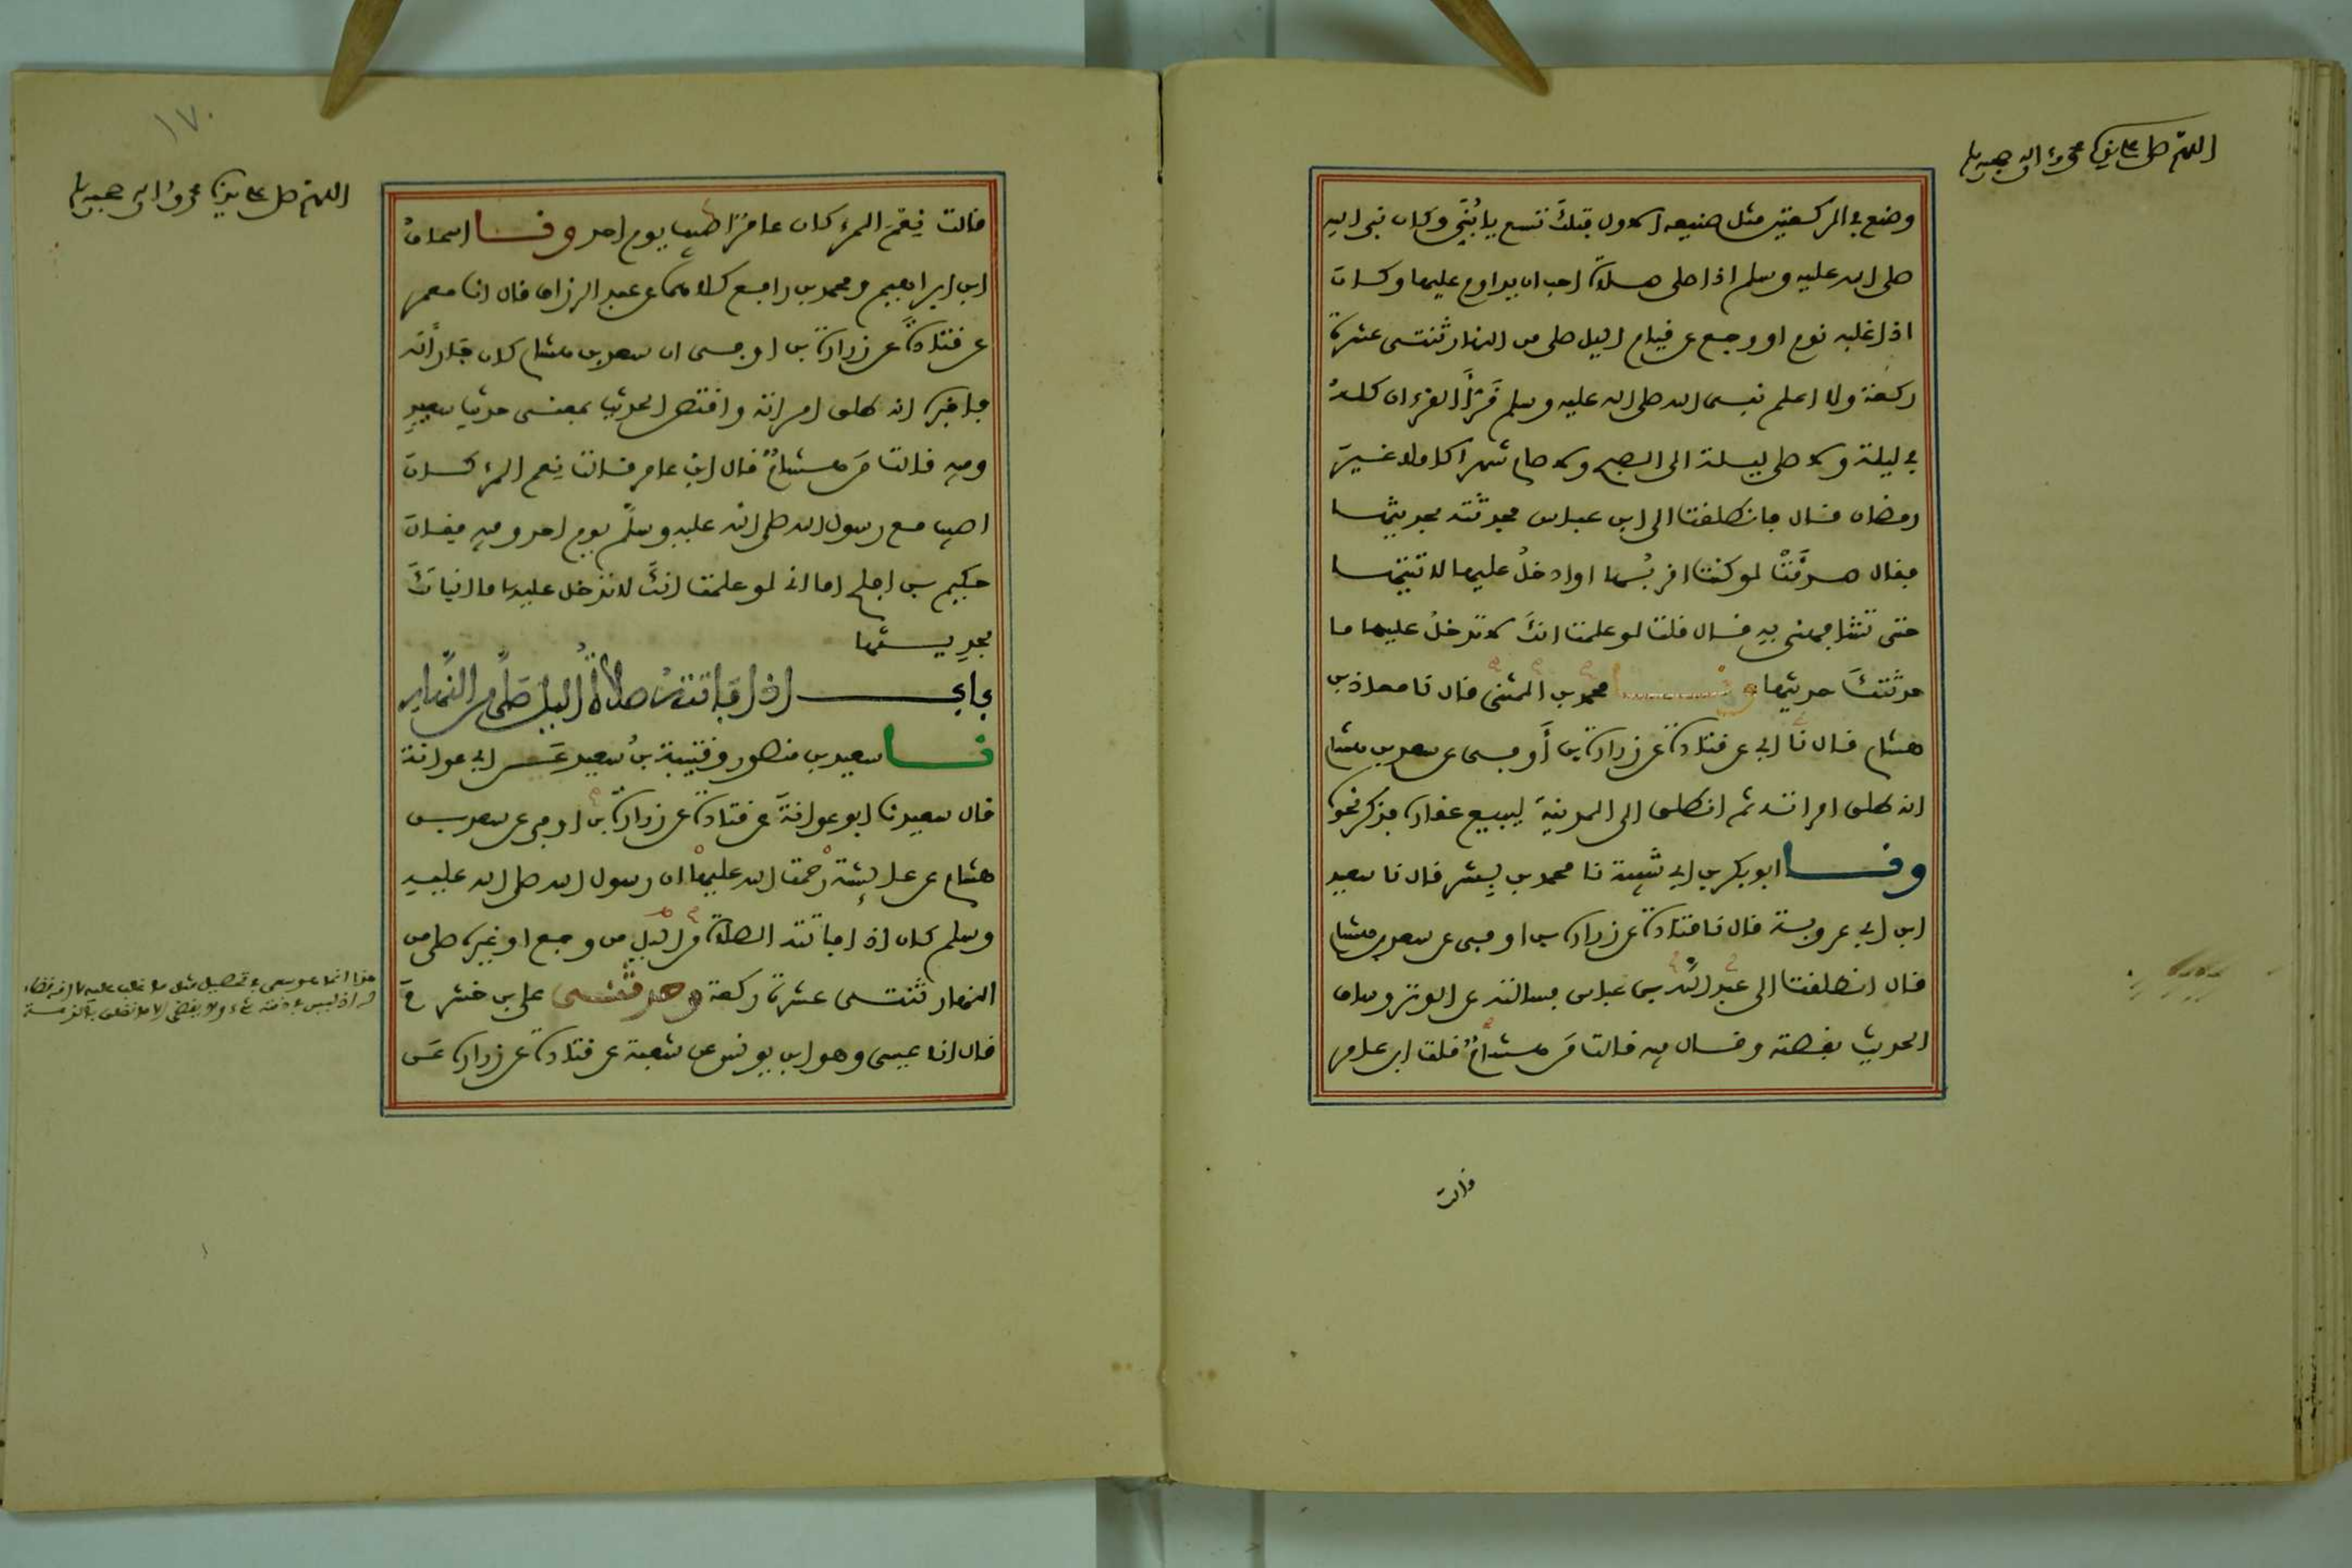 اللهم صل على سيدنا محمد وءاله وصحبه وسلم
وصنع في الركعتين مثل صنيعه الاول فتلك تسع يا بُنَيَّ وكان نبي الله
صلى الله عليه وسلم اذا صلى صلاة احب ان يداوم عليها وكان
اذا غلبه نوم او وجع عن قيام اليل صلى من النهار ثنتى عشرة
ركعة ولا اعلم نبى الله صلى الله عليه وسلم قَرَأَ القرءان كلهُ
في ليلة ولا صلى ليلة الى الصبح ولا صام شهرا كاملا غيرَ
رمضان قال فانطلقت الى ابن عباس فحدثته بحديثها
فقال صدَقَتْ لو كنت اقربُها او ادخلُ عليها لاتيتها
حتى تشافهنى بهِ قال قلت لو علمت انكَ لا تدخلُ عليها ما
حدثتكَ حديثها ونا محمد بن المثنى قال نا معاذ بن
هشام قال نا ابي عن قتادة عن زرارة بن أَوفى عن سعد بن هشام
انه طلق امراته ثم انطلق الى المدينة ليبيع عقاره فذكر نحوه
ونا ابو بكر بن ابي شيبة نا محمد بن بِشر قال نا سعيد
ابن ابي عروبة قال نا قتادة عن زرارة بن اوفى عن سعد بن هشام
قال انطلقت الى عبد الله بن عباس فسالته عن الوتر وساق
الحديث بقصته وقال فيه قالت مَن هشامٌ قلت ابن عامر
قالت
١٧٠
اللهم صل على سيدنا محمد وءاله وصحبه وسلم
قالت نِعْمَ المرء كان عامرٌ اصيب يوم احد ونا اسحاقُ
ابن ابراهيم ومحمد بن رافع كلاهما عن عبد الرزاق قال انا معمر
عن قتادةَ عن زرارة بن اوفى ان سعد بن هشام كان جارًا له
فاخبره انه طلق امراته واقتص الحديث بمعنى حديث سعيدٍ
وفيه قالت مَن هشامٌ قال ابن عامر قالت نِعم المرء كان
اصيب مع رسول الله صلى الله عليه وسلم يوم احد وفيه فقال
حَكِيم بن افلح اما انى لو علمت انكَ لا تدخل عليها ما انباتكَ
بحدِيثها
باب اذا فاتته صلاةُ اليل صَلَّى من النَّهار
نا سعيد بن منصور وقتيبة بنُ سعيد عَن ابي عوانة
قال سعيد نا ابو عوانةَ عن قتادة عن زرارة بن اوفى عن سعد بن
هشام عن عايشة رَحمت الله عليها ان رسول الله صلى الله عليه
وسلم كان اذا فاتته الصلاة من اليل من وجع او غيره صلى من
النهار ثنتى عشرة ركعة وحدثنى على بن خشرم
قال انا عيسى وهو ابن يونس عن شعبة عن قتادة عن زرارة عَن